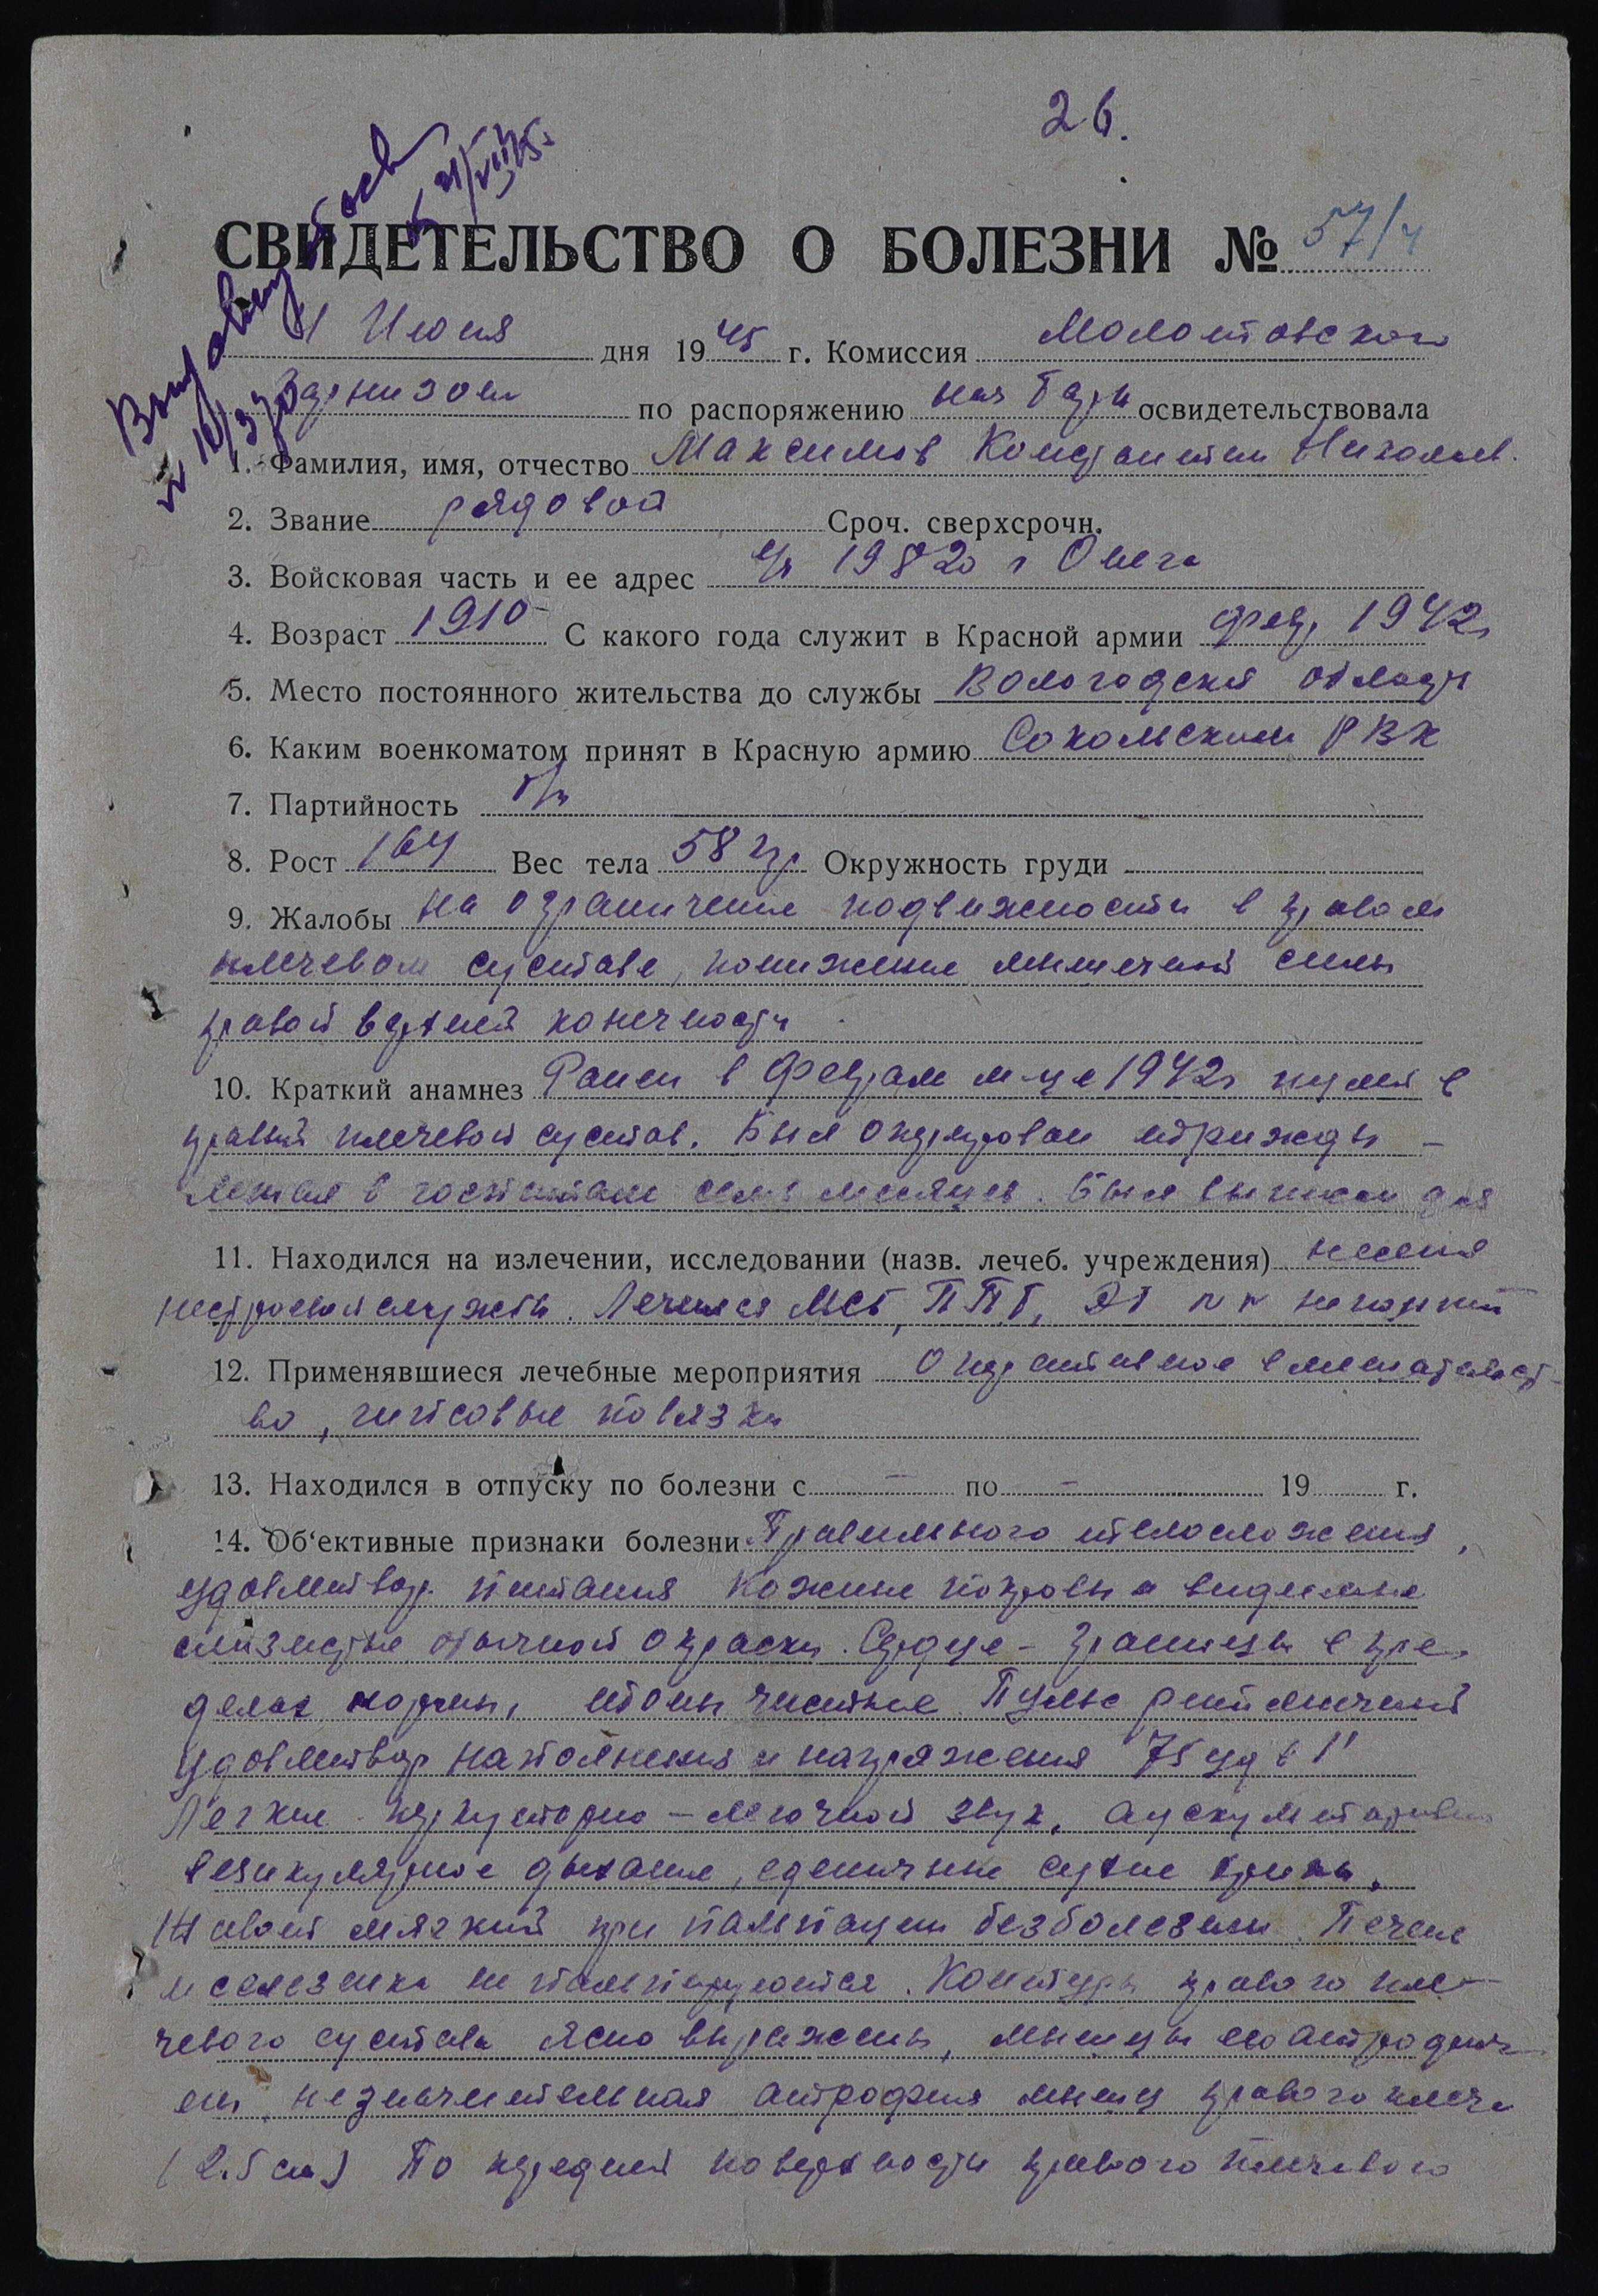 26.
СВИДЕТЕЛЬСТВО О БОЛЕЗНИ № 57/ч
Июня дня 1945 г. Комиссия Молотовского
по распоряжению нач Гарн освидетельствовала
1. Фамилия, имя, отчество Максимов Константин Николаев.
2. Звание рядовой Сроч. сверхсрочн.
3. Войсковая часть и ее адрес 19820 г Онега
4. Возраст 1910 С какого года служит в Красной армии 1942г
5. Место постоянного жительства до службы Вологодская область
6. Каким военкоматом принят в Красную армию Сокольским РВК
7. Партийность б/п
8. Рост 164 Вес тела 58 кг Окружность груди
9. Жалобы на ограничение подвижности в правом
плечевом суставе, понижение мышечной силы
правой верхней конечности
10. Краткий анамнез Ранен в феврале м-це 1942г пулей в
правый плечевой сустав. Был оперирован трижды –
лежал в госпитале семь месяцев. Был выписан для
11. Находился на излечении, исследовании (назв. лечеб. учреждения) несения
нестроевой службы. Лечился МСБ, ППГ, ЭГ NN не помнит
12. Применявшиеся лечебные мероприятия Оперативное вмешательст-
во, гипсовые повязки
13. Находился в отпуску по болезни с – по – 19 г.
14. Об‘ективные признаки болезни Правильного телосложения,
удовлетвор. питания Кожные покровы и видимые
слизистые обычной окраски. Сердце – границы в пре-
делах нормы, тоны чистые Пульс ритмичный
удовлетвор наполнения и напряжения 75 уд в 1"
Легкие перкуторно – легочной звук, аускультативно
везикулярное дыхание, единичные сухие хрипы.
Живот мягкий при пальпации безболезнен. Печень
и селезенка не пальпируются. Контуры правого пле-
чевого сустава ясно выражены, мышцы его
незначительная атрофия мышц правого плеча
(2.5 см) По передней поверхности правого плечевого